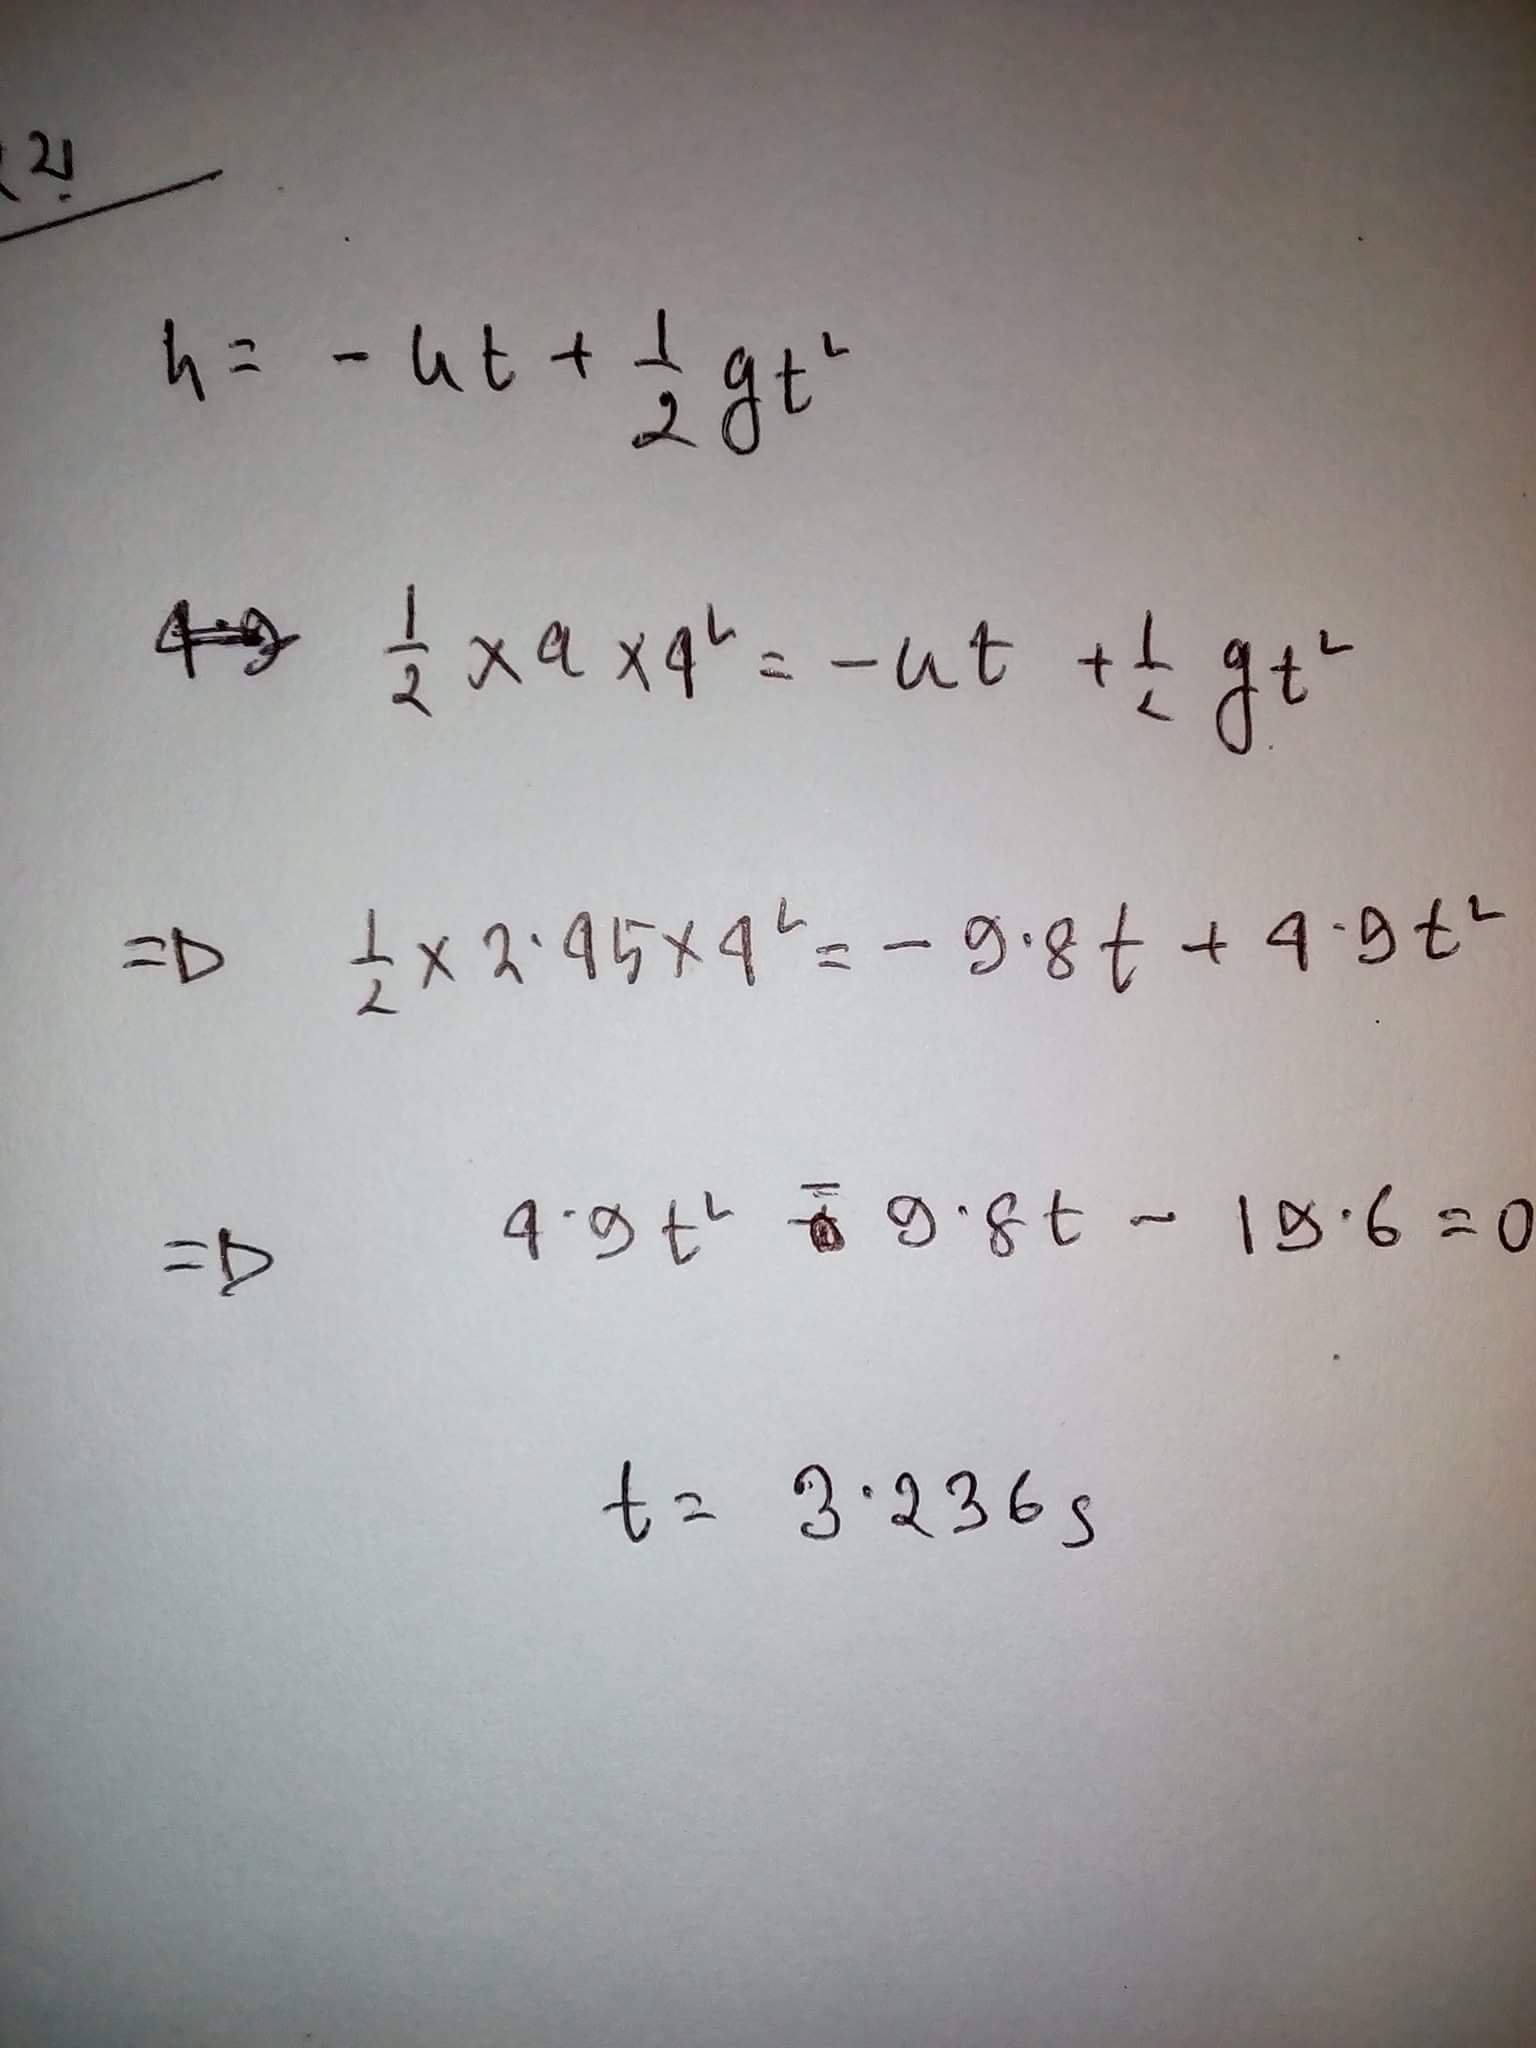 2!
h = - ut + 1/2 gt²
1/2 × a × 4² = - ut + 1/2 gt²
⇒ 1/2 × 2.45 × 4² = - 9.8t + 4.9t²
⇒ 4.9t² - 9.8t - 19.6 = 0
t = 3.236s